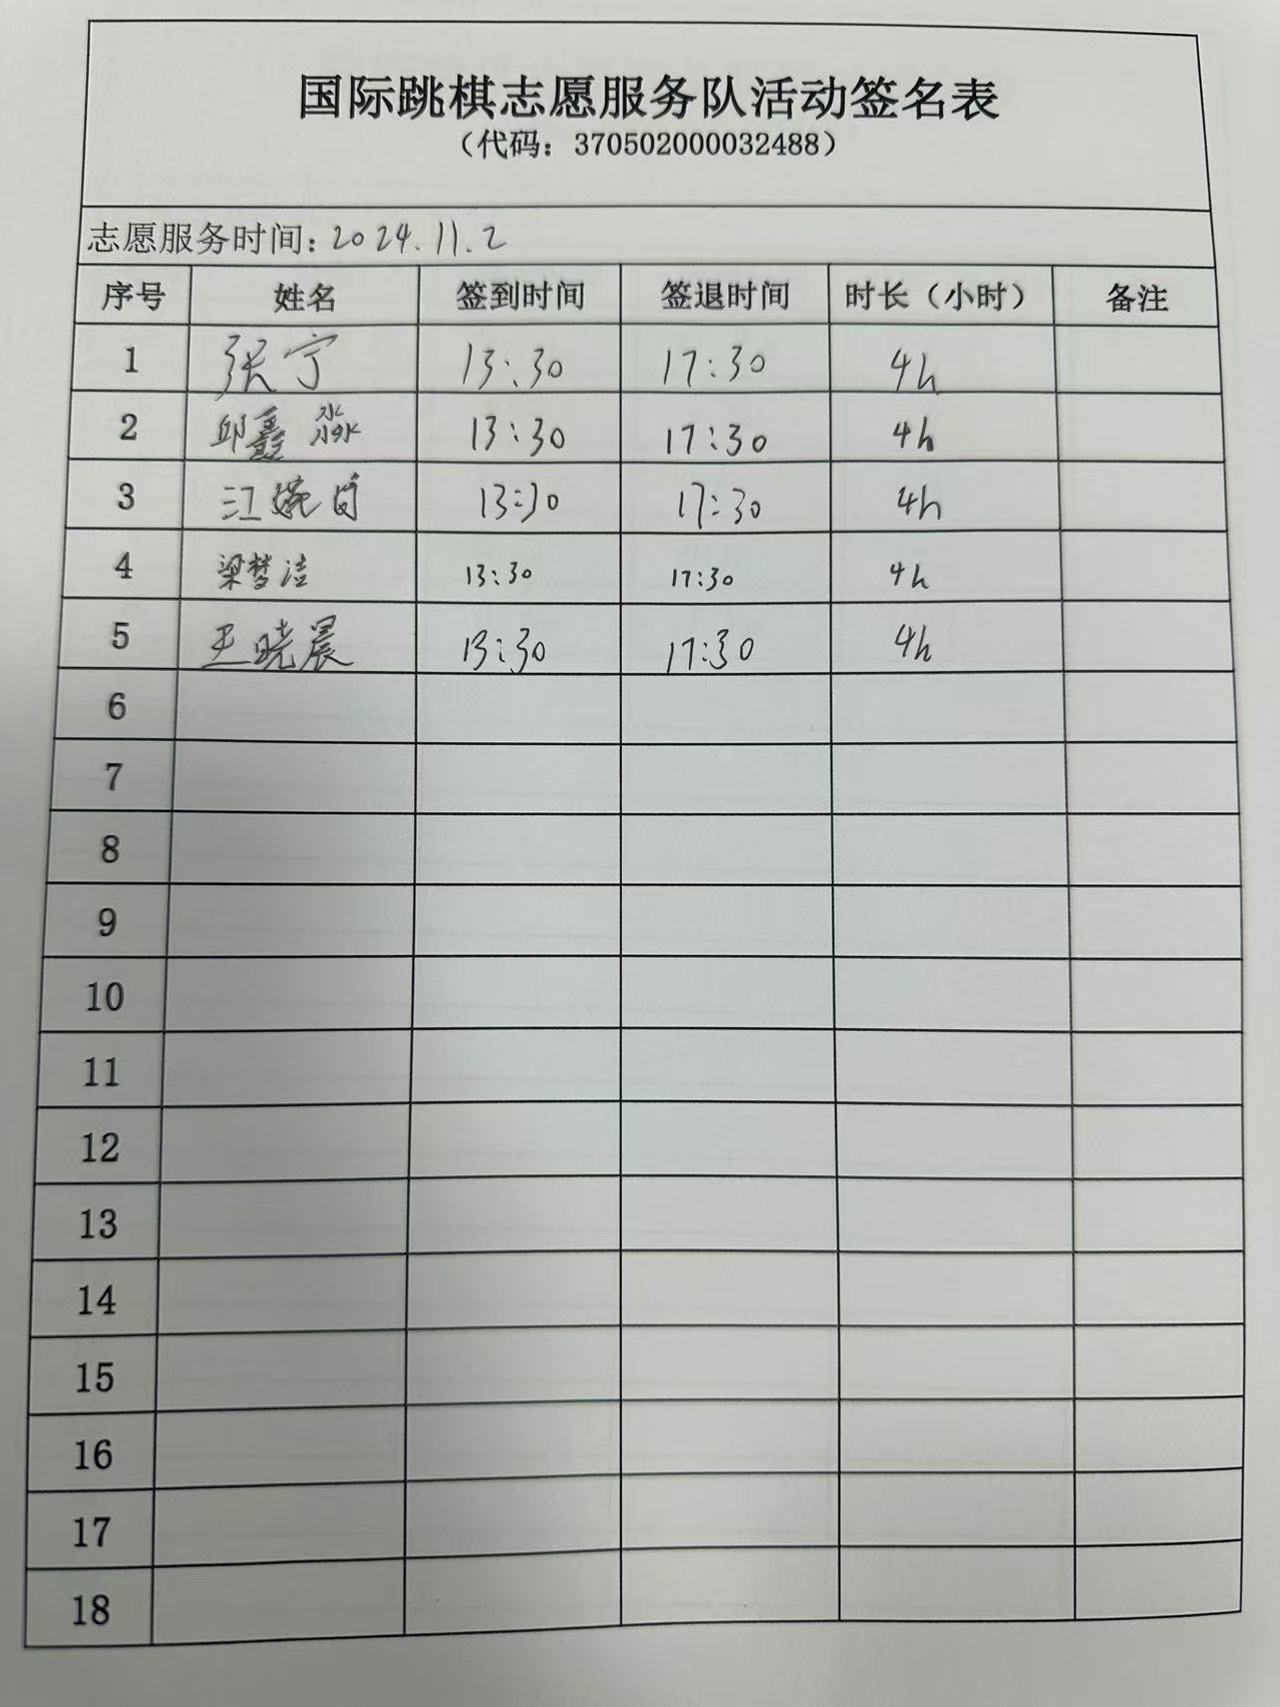 国际跳棋志愿服务队活动签名表
（代码：370502000032488）
志愿服务时间：2024.11.2
序号 姓名 签到时间 签退时间 时长（小时） 备注
1 张宁 13:30 17:30 4h
2 邱鑫淼 13:30 17:30 4h
3 江婉 13:30 17:30 4h
4 梁梦洁 13:30 17:30 4h
5 王晓晨 13:30 17:30 4h
6
7
8
9
10
11
12
13
14
15
16
17
18